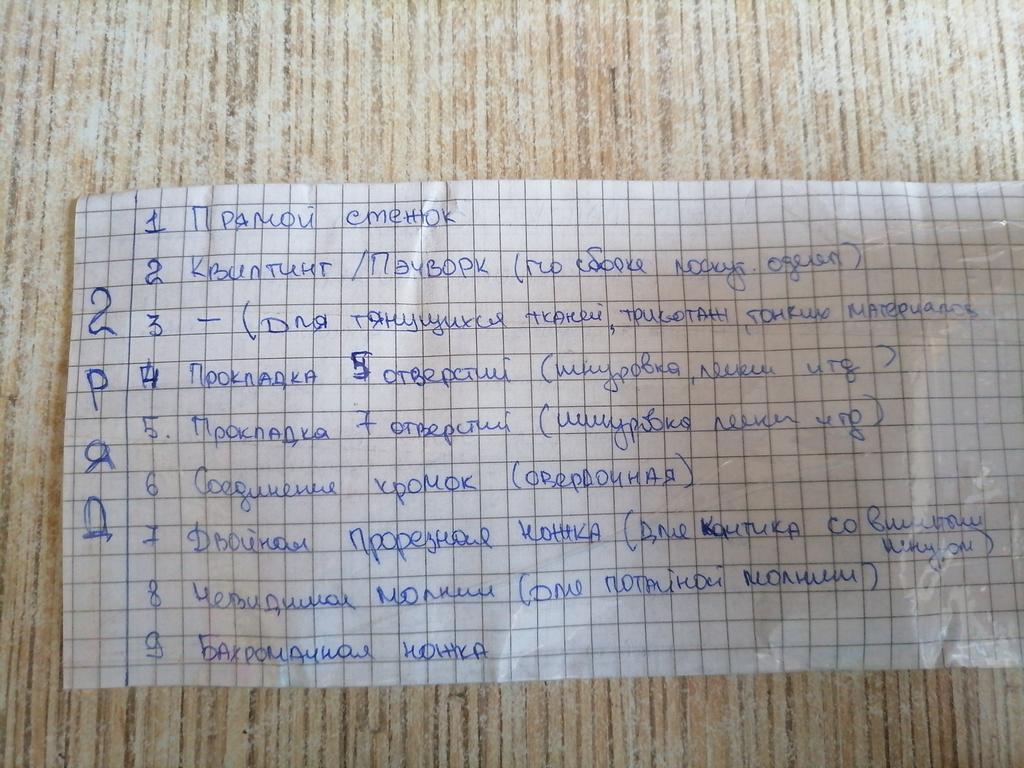 2 РЯД
1 Прямой стежок
2 Квилтинг / Пэчворк (по сборке лоскут. одеял)
3 — (для тянущихся тканей, трикотаж, тонких материалов
4 Прокладка 5 отверстий (шнуровка, лески итд)
5. Прокладка 7 отверстий (шнуровка лески итд)
6 Соединение кромок (оверлочная)
7 Двойная прорезная ножка (для кантика со вшитым
шнуром)
8 Невидимая молния (для потайной молнии)
9 Бахромочная ножка